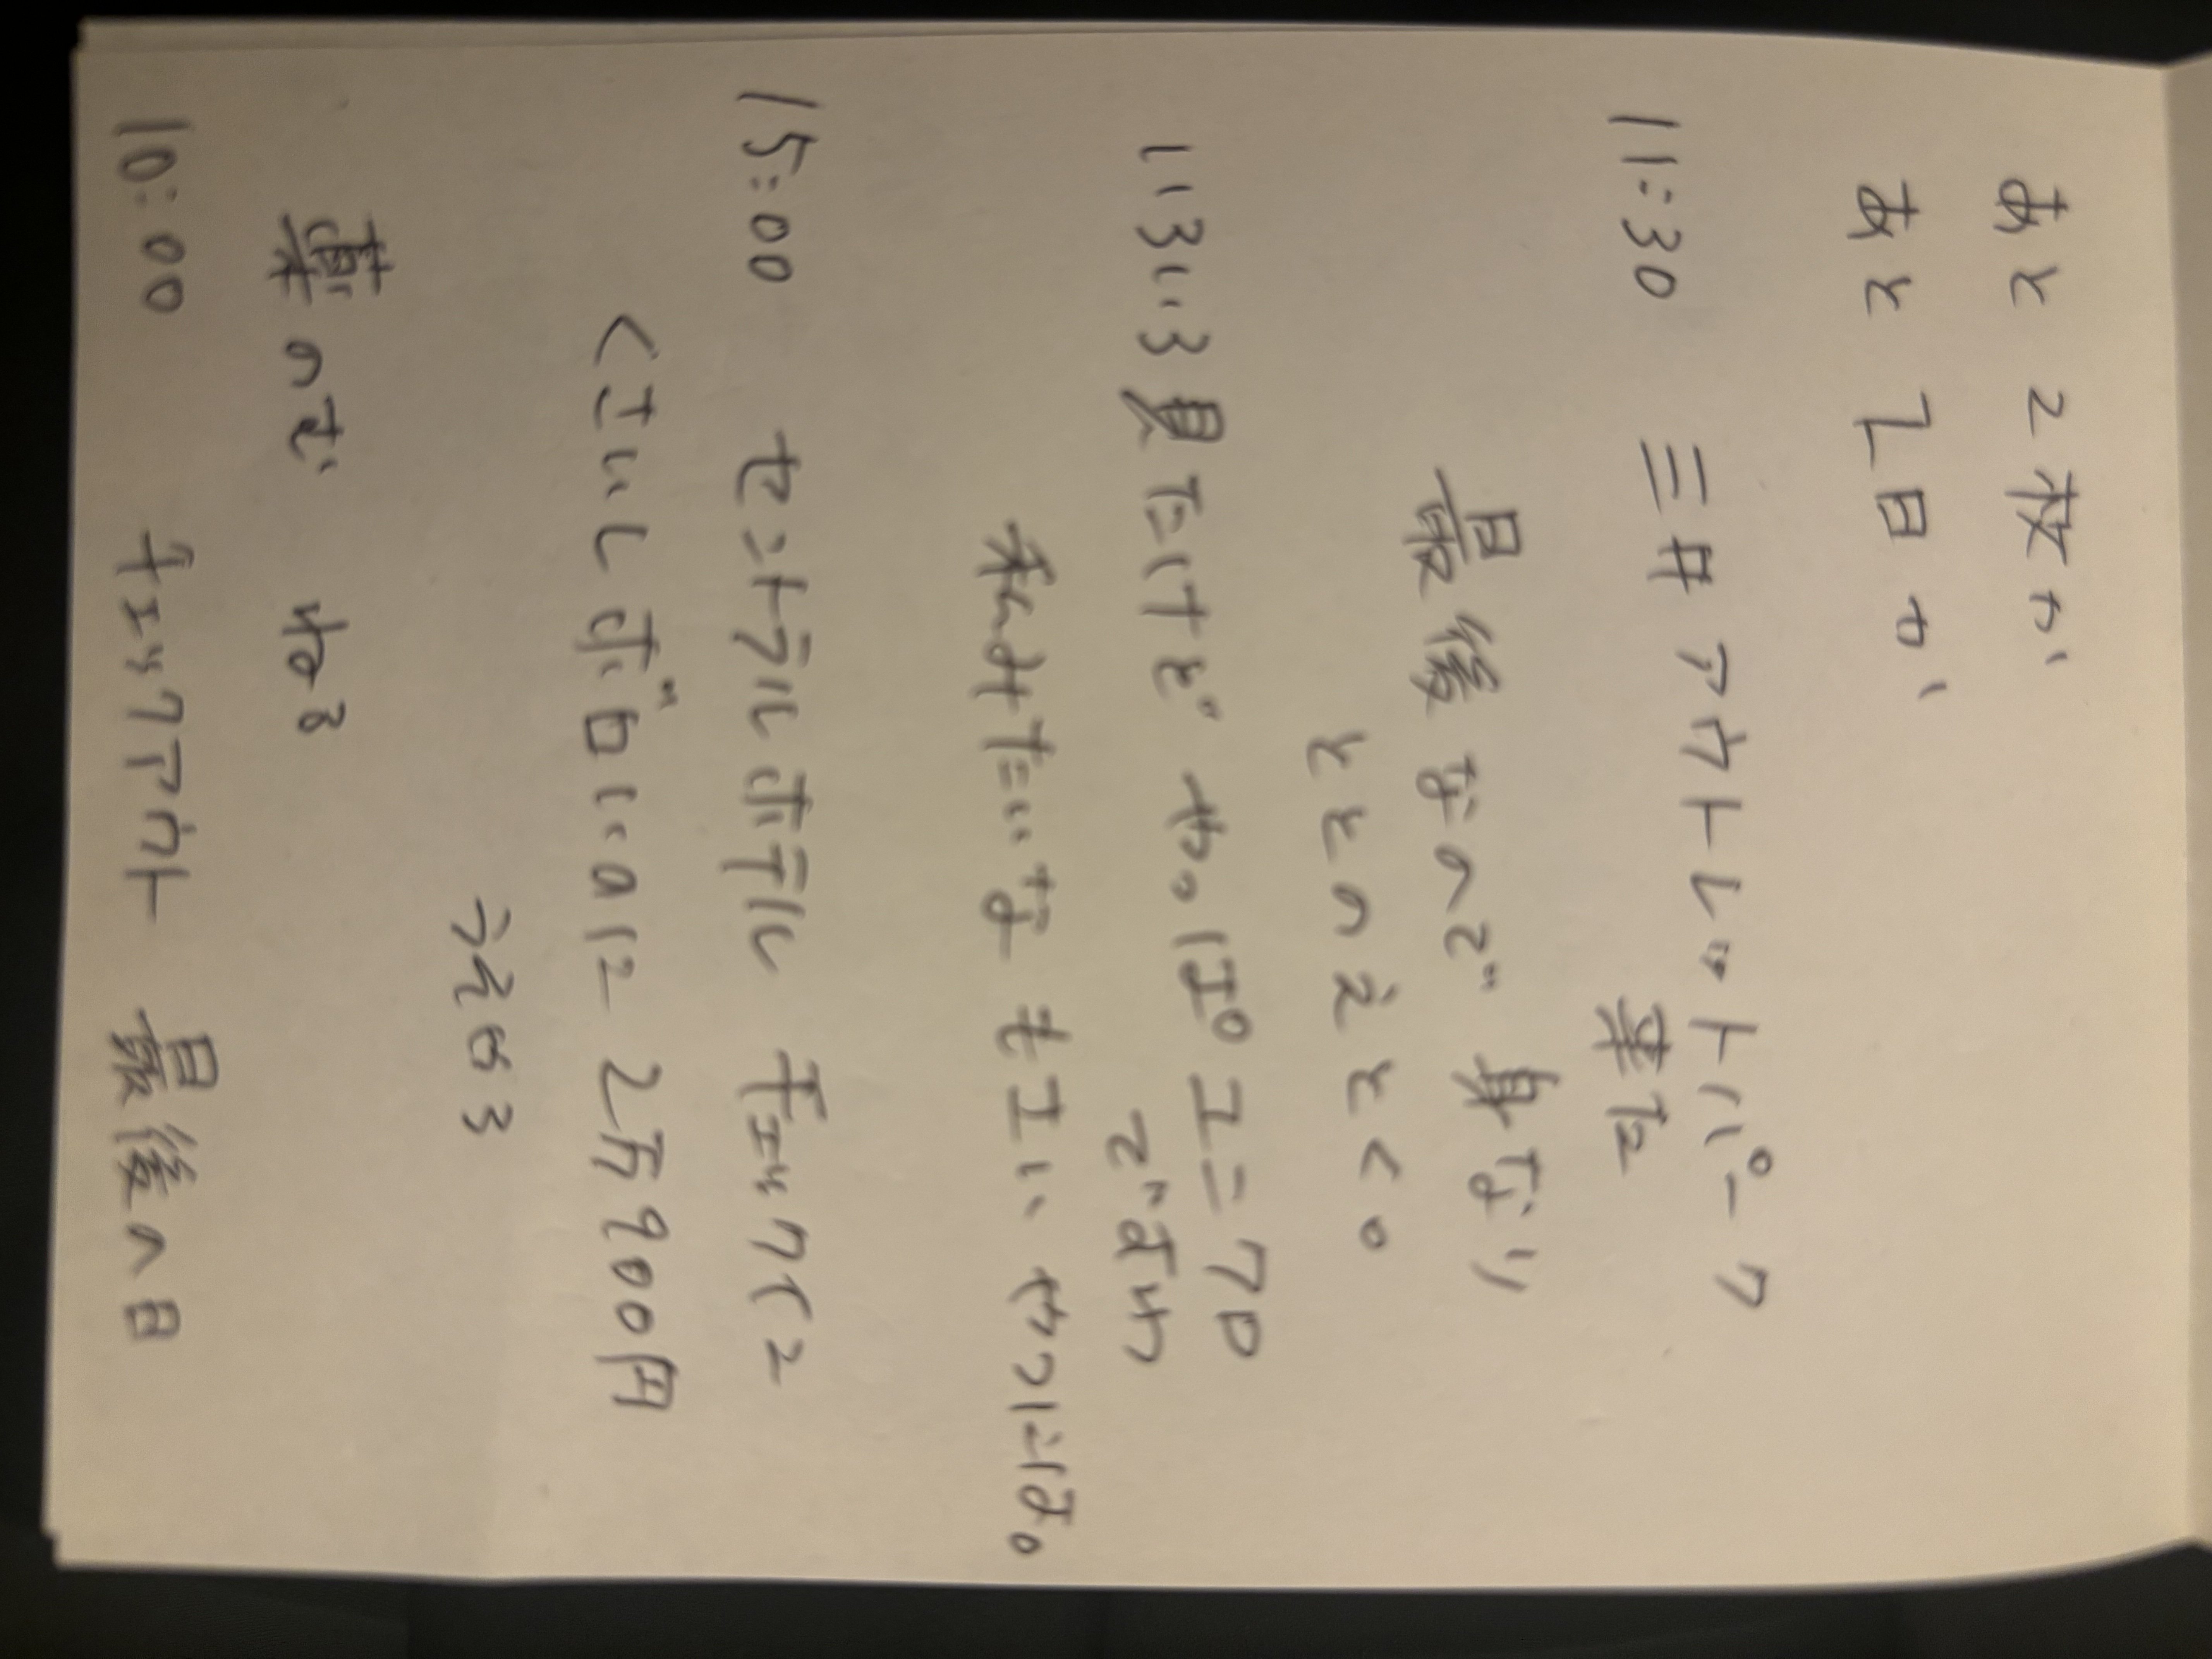 あと2枚か、
あと1日か、
11:30 三井アウトレットパーク
来た
最後なので 身なり
ととのえとく。
いろいろ見たけど やっぱユニクロ
で
私みたいな やつには。
15:00 セントラルホテル チェックイン
ボロいのに 2万900円
薬のむ ねる
10:00 チェックアウト 最後の日